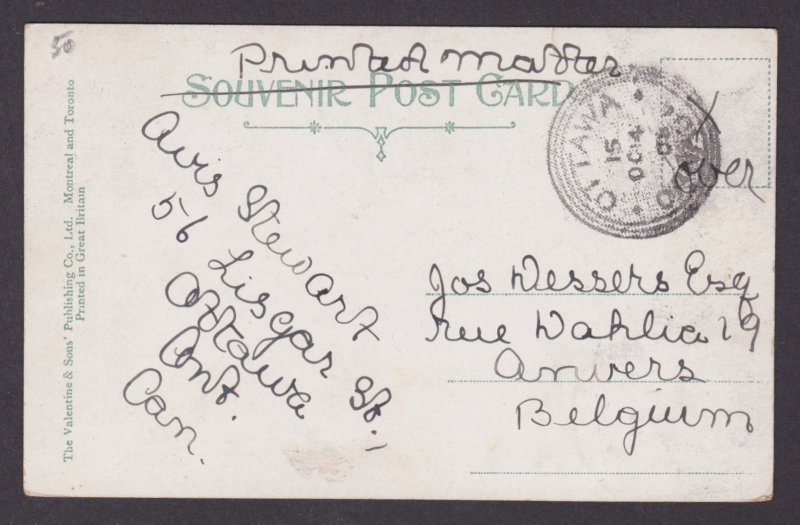 50
Printed Matter
SOUVENIR POST CARD
OTTAWA CANADA
15
OC 4
X
over
Avis Stewart
56 Lisgar St.,
Ottawa
Ont.
Can.
Jos Wessers Esq
rue Dahlia 19
Anvers
Belgium
The Valentine & Sons' Publishing Co., Ltd. Montreal and Toronto
Printed in Great Britain